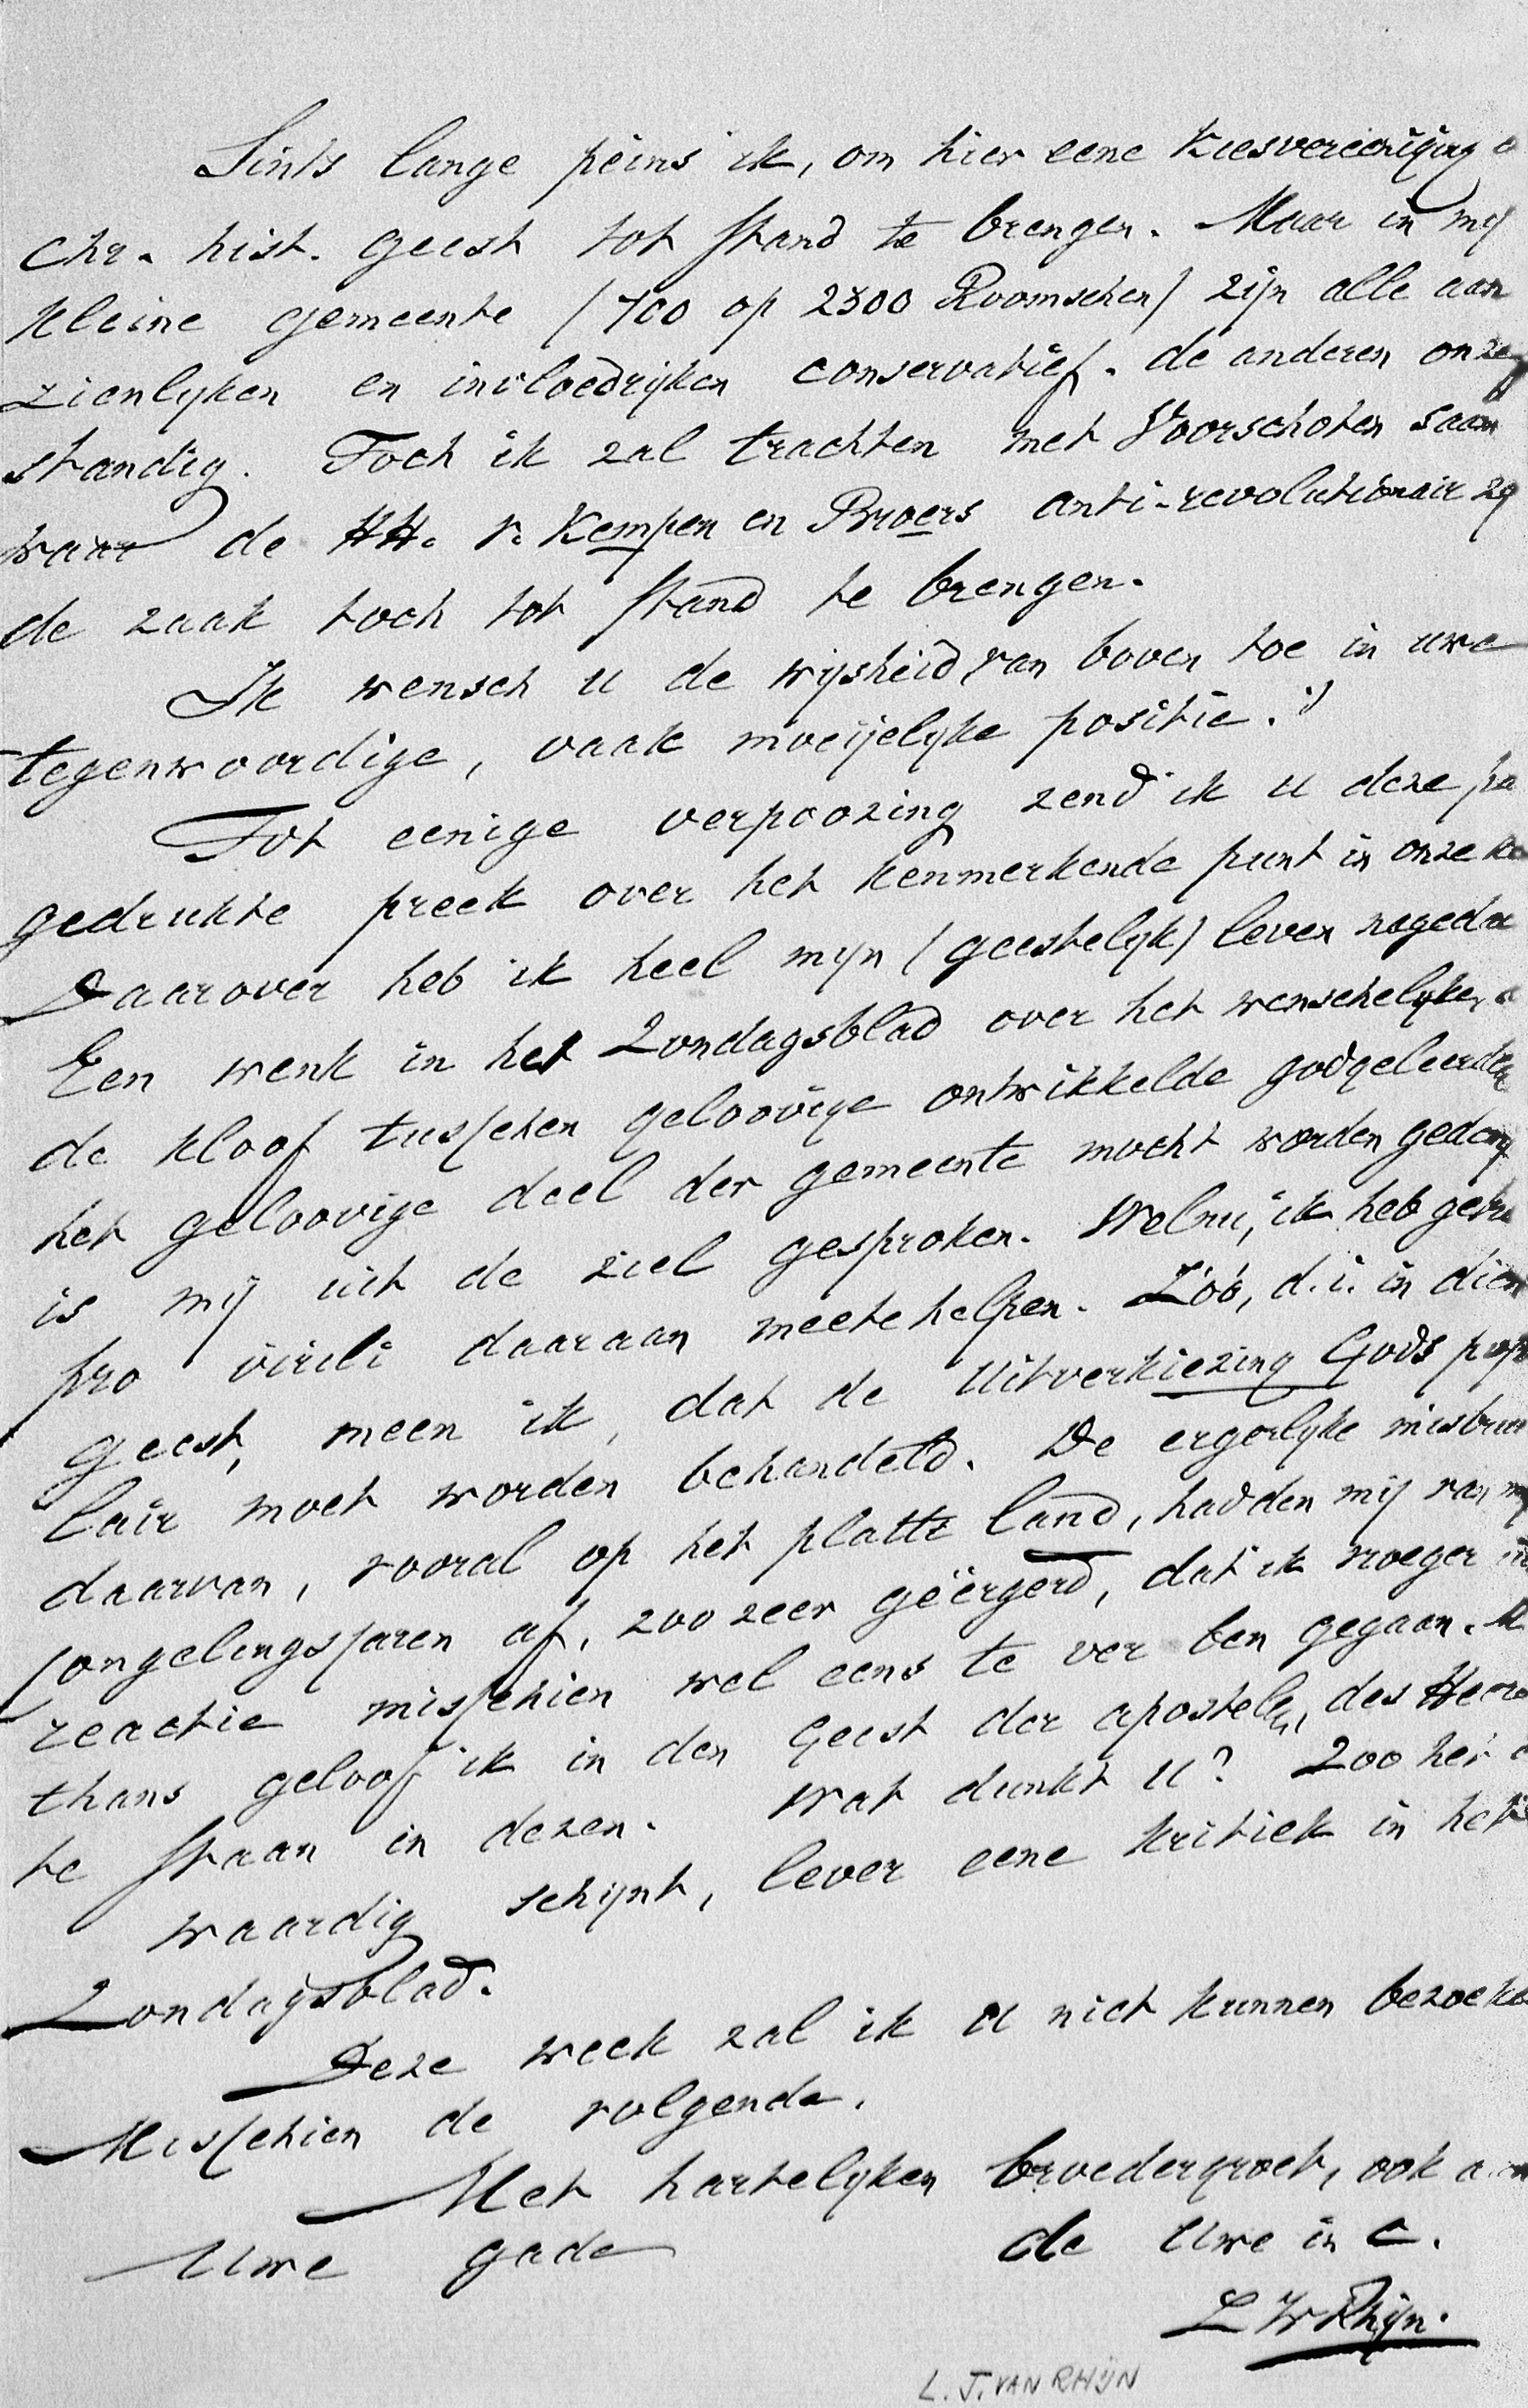 Sints lange peins ik, om hier eene Kiesvereeniging
chr. hist. geest tot stand te brengen. Maar in mij
kleine gemeente (700 op 2300 Roomschen) zijn alle aan
zienlijken en invloedrijken conservatief. de anderen onze
standig. Toch ik zal trachten met Voorschoten saam
waar de HH. v. Kempen en Broers anti-revolutionair zij
de zaak toch tot stand te brengen.
Ik wensch u de wijsheid van boven toe in uwe
tegenwoordige, vaak moeijelijke positie.
Tot eenige verpoozing zend ik u deze pa
gedrukte preek over het kenmerkende punt in onze ke
Daarover heb ik heel mijn (geestelijk) leven nageda
Een wenk in het Zondagsblad over het wenschelijke,
de kloof tusschen geloovige ontwikkelde godgeleerden
het geloovige deel der gemeente mocht worden gedemp
is mij uit de ziel gesproken. Welnu, ik heb getra
pro virili daaraan meete helpen. Zóó, d.i. in dien
geest, meen ik, dat de uitverkiezing Gods popu
lair moet worden behandeld. De ergerlijke misbrui
daarvan, vooral op het platte land, hadden mij van mij
jongelingsjaren af, zoo zeer geërgerd, dat ik vroeger in
reactie misschien wel eens te ver ben gegaan.
thans geloof ik in den geest der apostelen, des Heere
te staan in dezen. Wat dunkt u? Zoo het
waardig schijnt, lever eene kritiek in het
Zondagsblad.
Deze week zal ik u niet kunnen bezoeke
Misschien de volgende.
Met hartelijken broedergroet, ook aan
Uwe gade de Uwe in C.
L v Rhijn.
L. J. VAN RHIJN